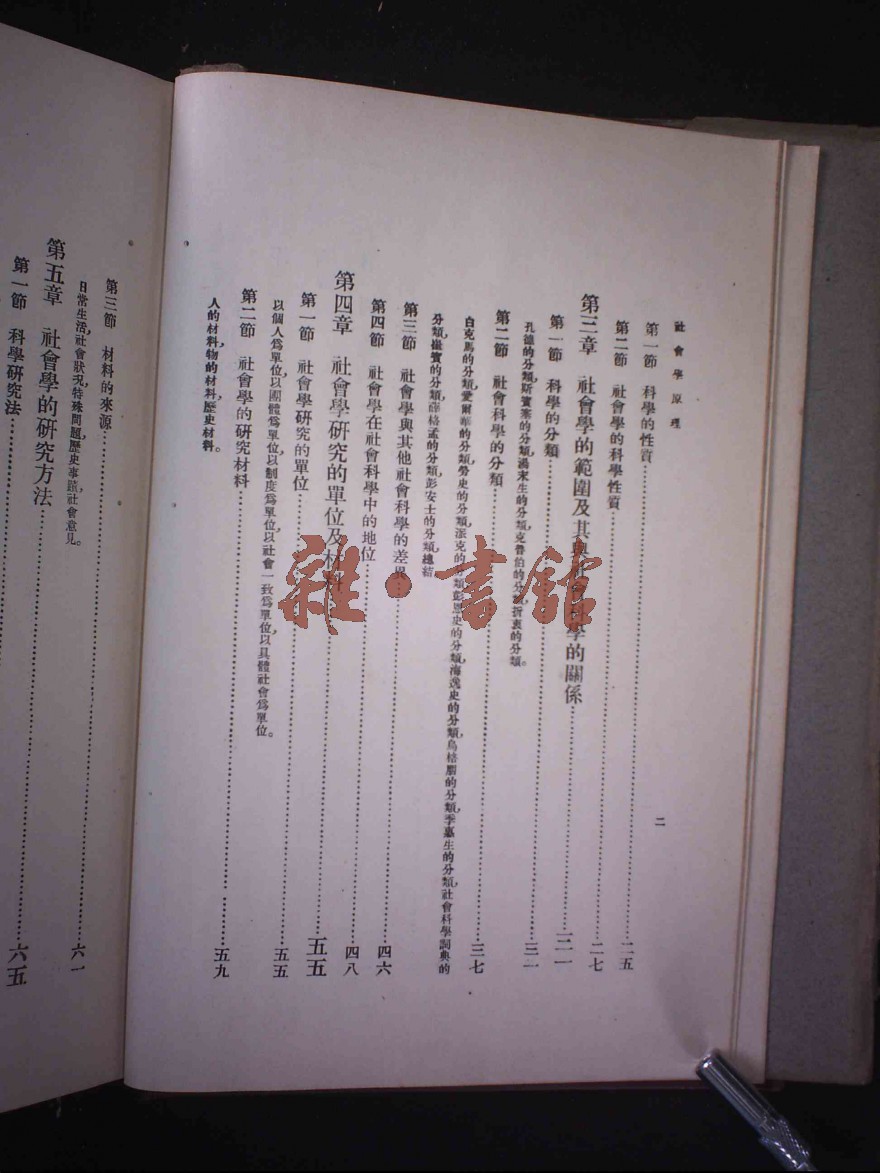 社會學原理
二
第一節 科學的性質 二五
第二節 社會學的科學性質 二七
第三章 社會學的範圍及其與社會科學的關係 三一
第一節 科學的分類 三一
孔德的分類,斯賓塞的分類,湯末生的分類,克魯伯的分類,折衷的分類。
第二節 社會科學的分類 三七
白克馬的分類,愛爾華的分類,勞史的分類,派克的分類,彭恩史的分類,海逸史的分類,烏格朋的分類,季嘉生的分類,社會科學詞典的
分類,嵇賓的分類,薛格孟的分類,彭安士的分類,總結
第三節 社會學與其他社會科學的差異 四六
第四節 社會學在社會科學中的地位 四八
第四章 社會學研究的單位及材料 五五
第一節 社會學研究的單位 五五
以個人爲單位,以團體爲單位,以制度爲單位,以社會一致爲單位,以具體社會爲單位。
第二節 社會學的研究材料 五九
人的材料,物的材料,歷史材料。
第三節 材料的來源 六一
日常生活,社會狀況,特殊問題,歷史事蹟,社會意見。
第五章 社會學的研究方法 六五
第一節 科學研究法
雜·書館